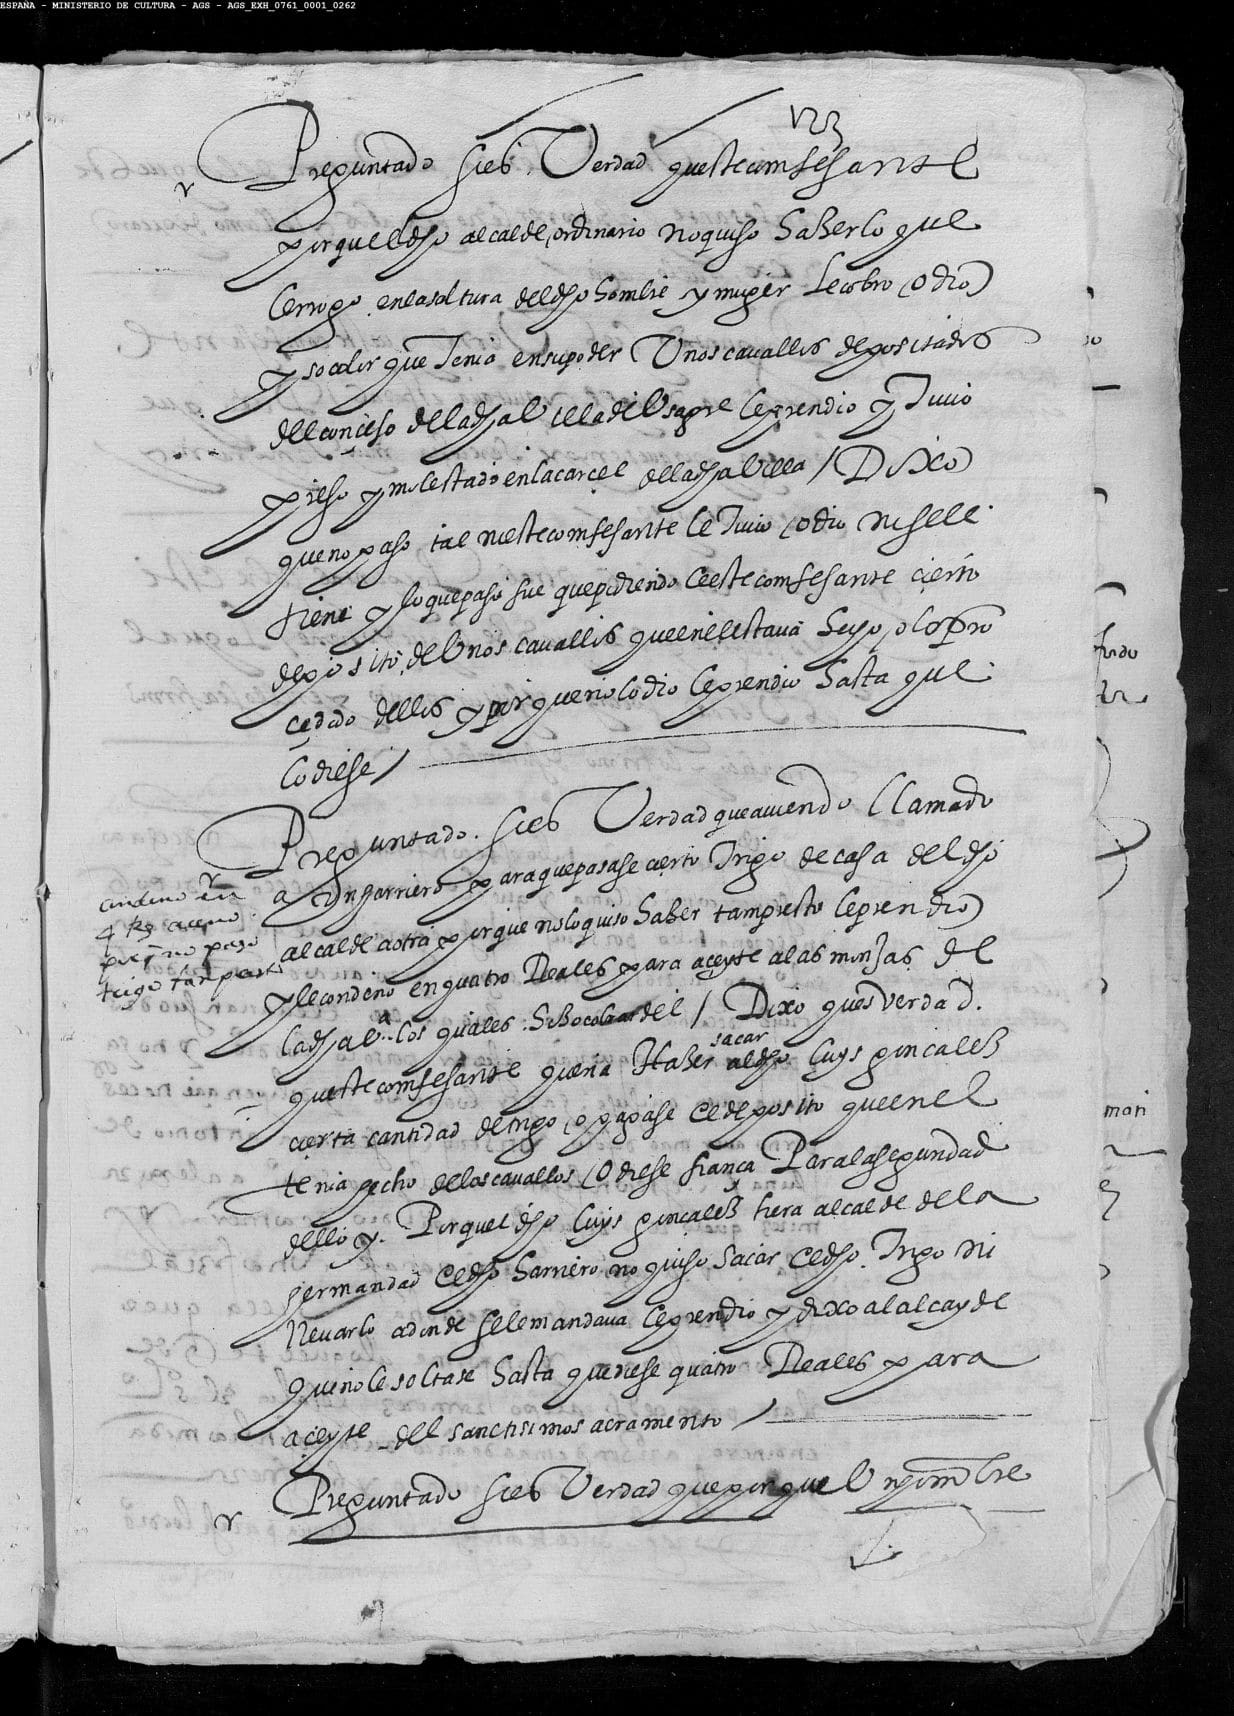 ESPAÑA - MINISTERIO DE CULTURA - AGS - AGS_EXH_0761_0001_0262
123
Preguntado si es Verdad queste comfesante
porque el dho alcalde ordinario no quiso haber lo que
le rrogo en la soltura del dho hombre y muger le cobro odio
y so color que Tenia en su poder Unos cavallos depositados
del conçejo de la dha Villa de Usagre le prendio y Tuvo
preso y molestado en la carçel de la dha Villa / Dixo
que no paso tal ni este comfesante le Tuvo odio ni se le
tiene y lo que paso fue que pidiendole este comfesante çierto
deposito de Unos cavallos que en el estava hecho o lo pro
çedido dellos y porque no lo dio le prendio hasta que
lo diese /
Preguntado si es Verdad que aviendo llamado
a Un harriero para que pasase çierto Trigo de casa del dho
alcalde a otra porque no lo quiso haber tam presto le prendio
y le condeno en quatro Reales para açeyte a las monjas de
la dha Vª los quales hiço cobrar del / Dixo ques verdad
queste comfesante queria Haber sacar al dho luys gonçalez
çierta cantidad de trigo o pagase el deposito que en el
tenia hecho de los cavallos o diese fiança Para la seguridad
dello y Porque el dho luys gonçalez hera alcalde de la
hermandad el dho harriero no quiso sacar el dho Trigo ni
llevarlo adonde se le mandava le prendio y dixo al alcayde
que no le soltase hasta que diese quatro Reales para
açeyte del sanctisimo sacramento /
Preguntado si es Verdad que porque Un hombre
4 Rs
no paso
trigo tan presto
mari